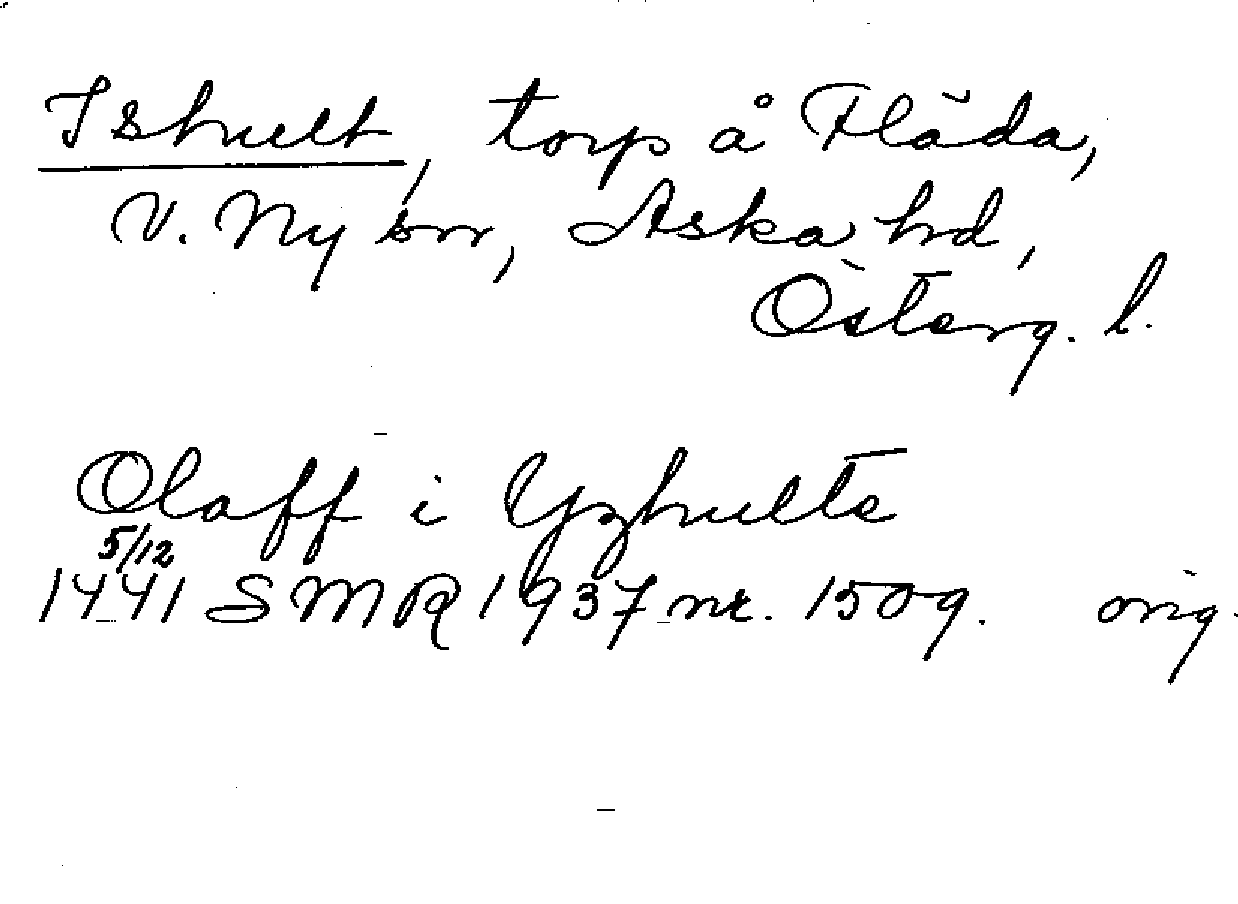 Ishult, torp å Fläda,
V. Ny sn, Aska hd,
Österg. l.
Olaff i Yzhulte
5/12
1441 SMR 1937 nr. 1509. orig.